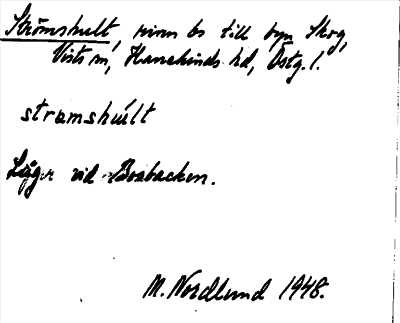 Strömshult, [?] ts till byn Skog,
Vists sn, Hanekinds hd, Östg. l.
strumshúlt
Ligger vid Boabacken.
M. Nordlund 1948.